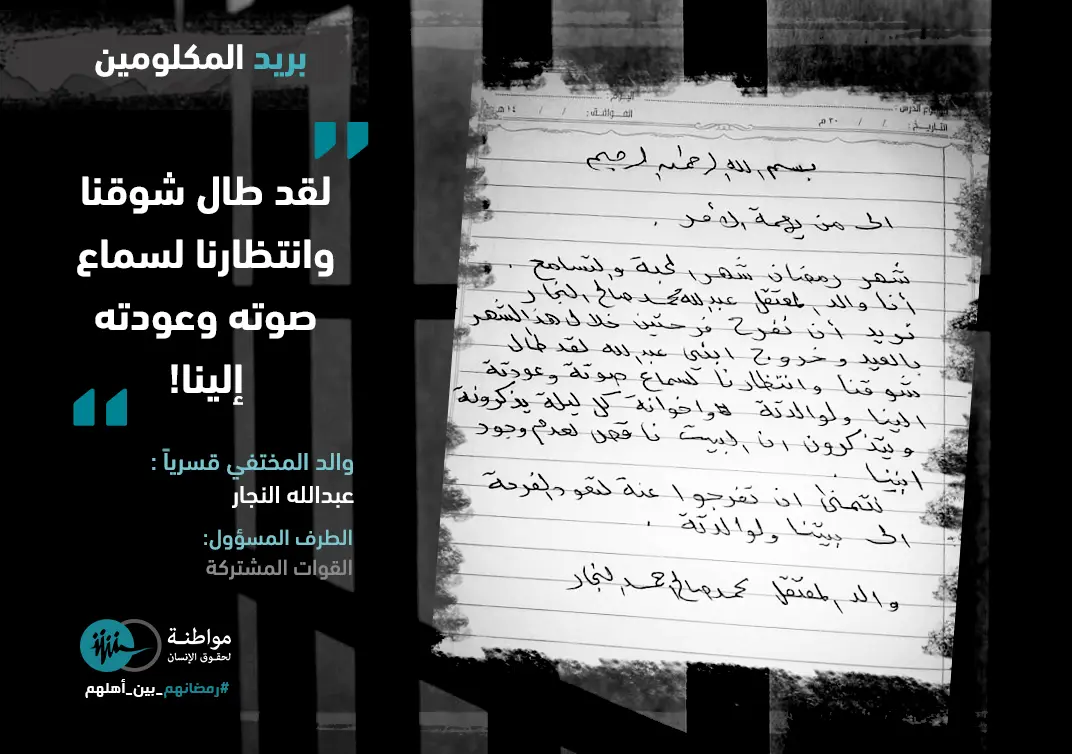 بريد المكلومين
لقد طال شوقنا
وانتظارنا لسماع
صوته وعودته
إلينا!
والد المختفي قسرياً :
عبدالله النجار
الطرف المسؤول:
القوات المشتركة
مواطنة
لحقوق الإنسان
#رمضانهم_بين_أهلهم
اليوم :
الدرس :
الموافق : / / ١٤ هـ
التاريخ : / / ٢٠ م
بسم الله الرحمن الرحيم
الى من يهمة الأمر .
شهر رمضان شهر المحبة والتسامح .
أنا والد المعتقل عبدالله محمد صالح النجار
نريد أن نفرح فرحتين خلال هذا الشهر
بالعيد وخروج ابني عبدالله لقد طال
شوقنا وانتظارنا لسماع صوتة وعودتة
الينا ولوالدتة واخوانة كل ليلة يذكرونة
ويتذكرون ان البيت ناقص لعدم وجود
ابننا .
نتمنى ان تفرجوا عنة لتعود الفرحة
الى بيتنا ولوالدتة .
والد المعتقل محمد صالح احمد النجار